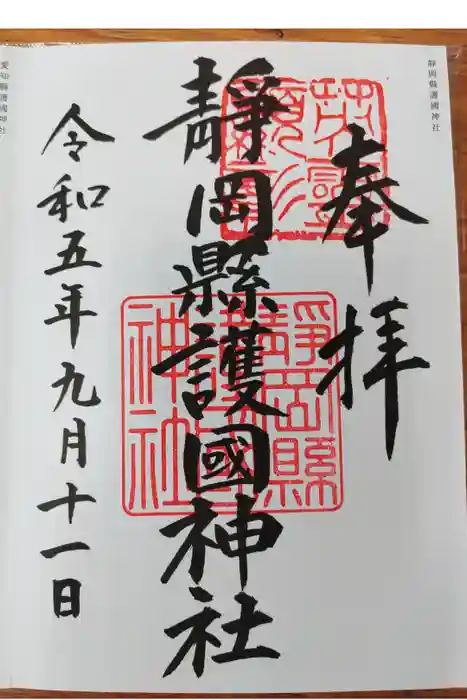 靜岡縣護國神社
奉拝
靜岡縣護國神社
靜岡縣護國神社
令和五年九月十一日
愛知縣護國神社